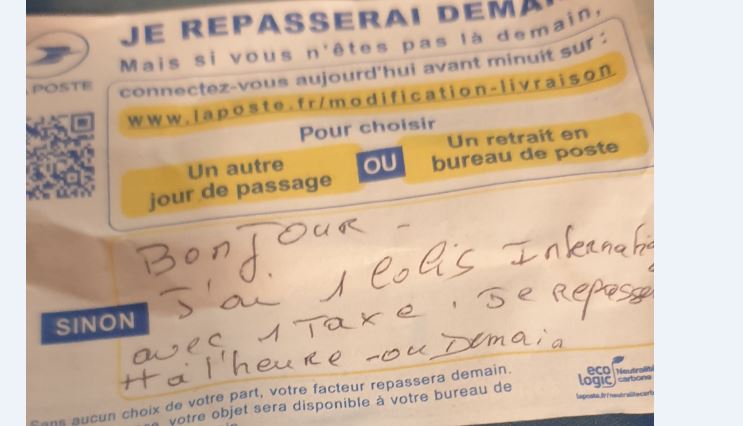 JE REPASSERAI
Mais si vous n'êtes pas là demain,
connectez-vous aujourd'hui avant minuit sur :
www.laposte.fr/modification-livraison
Pour choisir
Un autre
jour de passage
OU
Un retrait en
bureau de poste
POSTE
Bonjour -
J'ai 1 colis
SINON
avec 1 Taxe. Je
à l'heure - ou Demain
aucun choix de votre part, votre facteur repassera demain.
votre objet sera disponible à votre bureau de
eco
logic
laposte.fr/